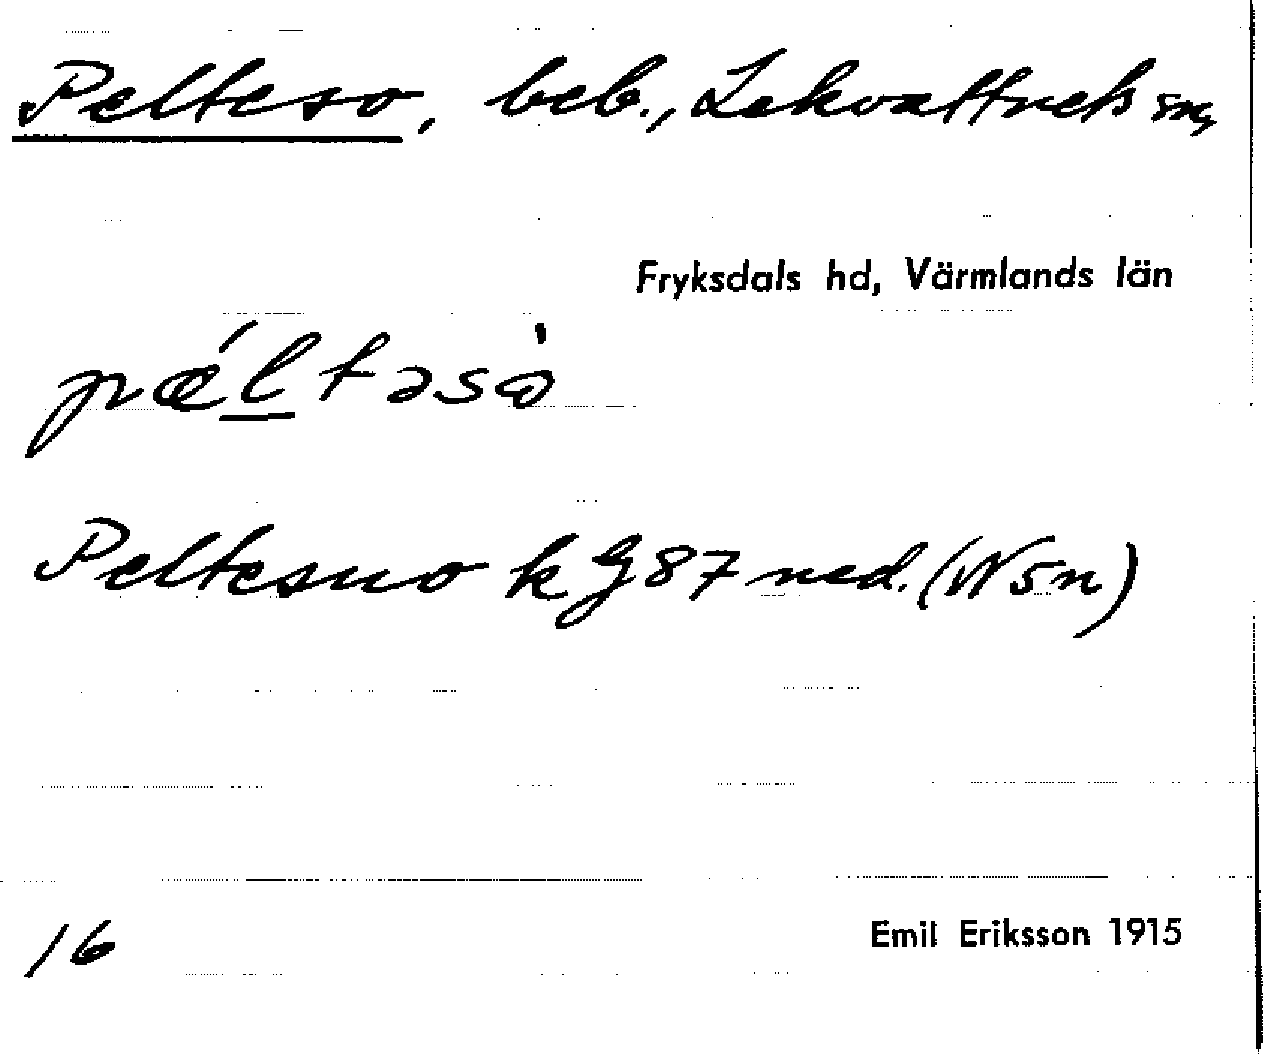 Pelteso, beb., Lekvattnets sn,
Fryksdals hd, Värmlands län
pǽltəsò
Peltesuo k G 87 ned. (W sn)
16
Emil Eriksson 1915